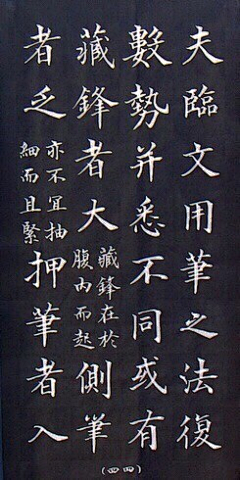 夫臨文用筆之法復
數勢并悉不同或有
藏鋒者大藏鋒在於腹內而起側筆
者乏亦不宜抽細而且緊押筆者入
(四四)